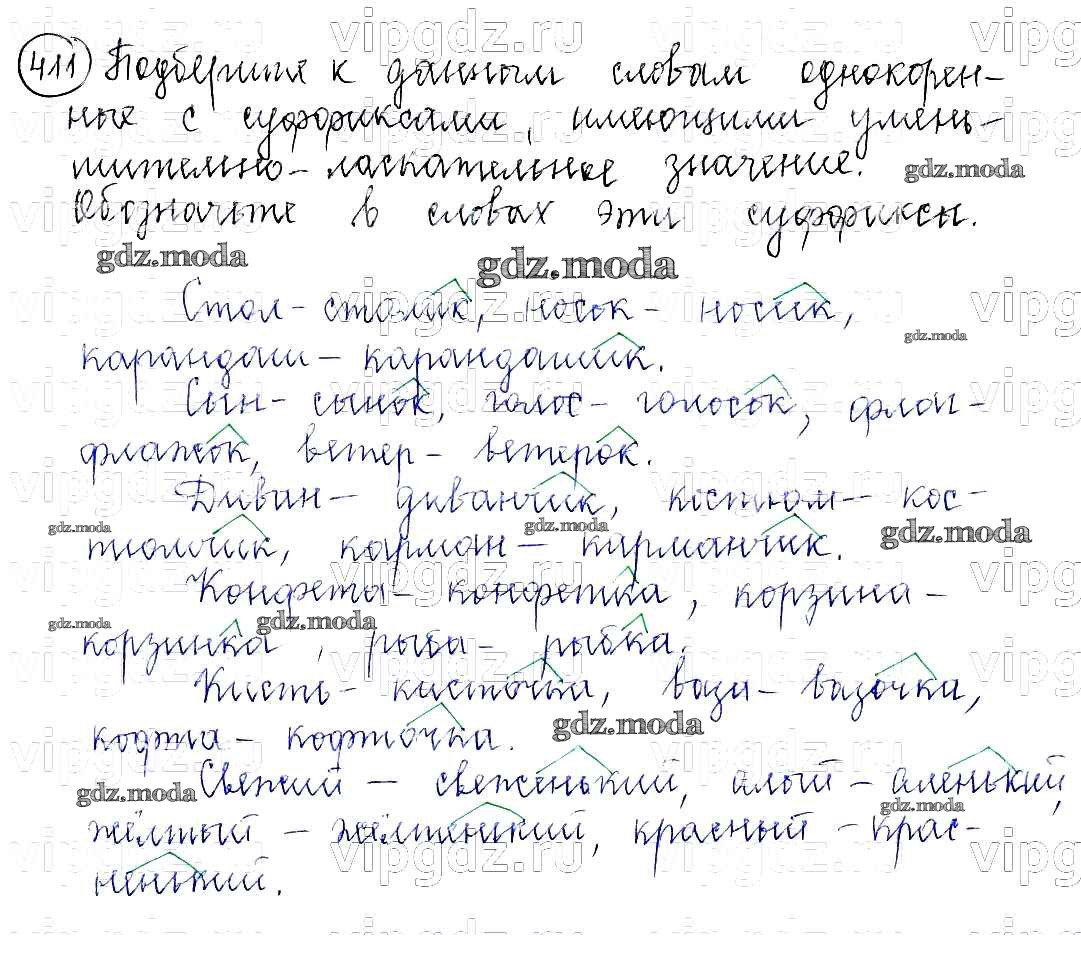 411 Подберите к данным словам однокорен-
ные с суффиксами, имеющими умень-
шительно-ласкательное значение.
Обозначьте в словах эти суффиксы.
Стол - столик, носок - носик,
карандаш - карандашик.
Сын - сынок, голос - голосок, флаг -
флажок, ветер - ветерок.
Диван - диванчик, костюм - кос-
тюмчик, карман - карманчик.
Конфета - конфетка, корзина -
корзинка, рыба - рыбка.
Кисть - кисточка, ваза - вазочка,
кофта - кофточка.
Свежий - свеженький, алый - аленький,
жёлтый - жёлтенький, красный - крас-
ненький.
gdz.moda
vipgdz.ru